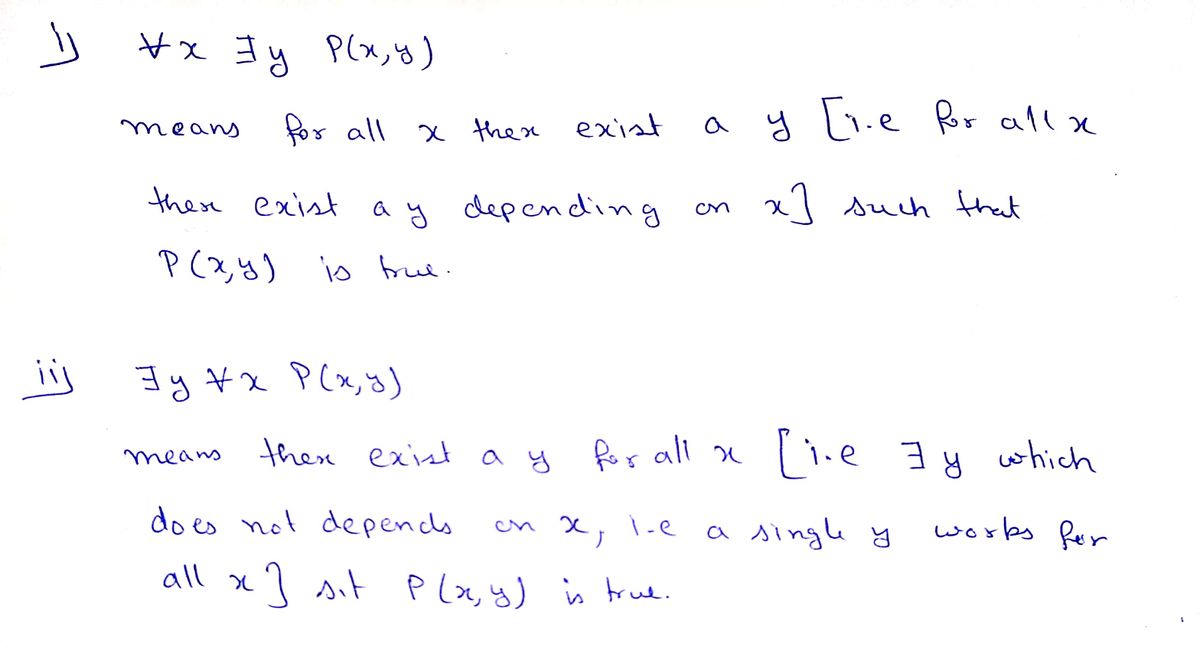 i) ∀x ∃y P(x,y)
means for all x there exist a y [i.e for all x
there exist a y depending on x] such that
P(x,y) is true.
ii) ∃y ∀x P(x,y)
means there exist a y for all x [i.e ∃y which
does not depends on x, i-e a single y works for
all x] s.t P(x,y) is true.